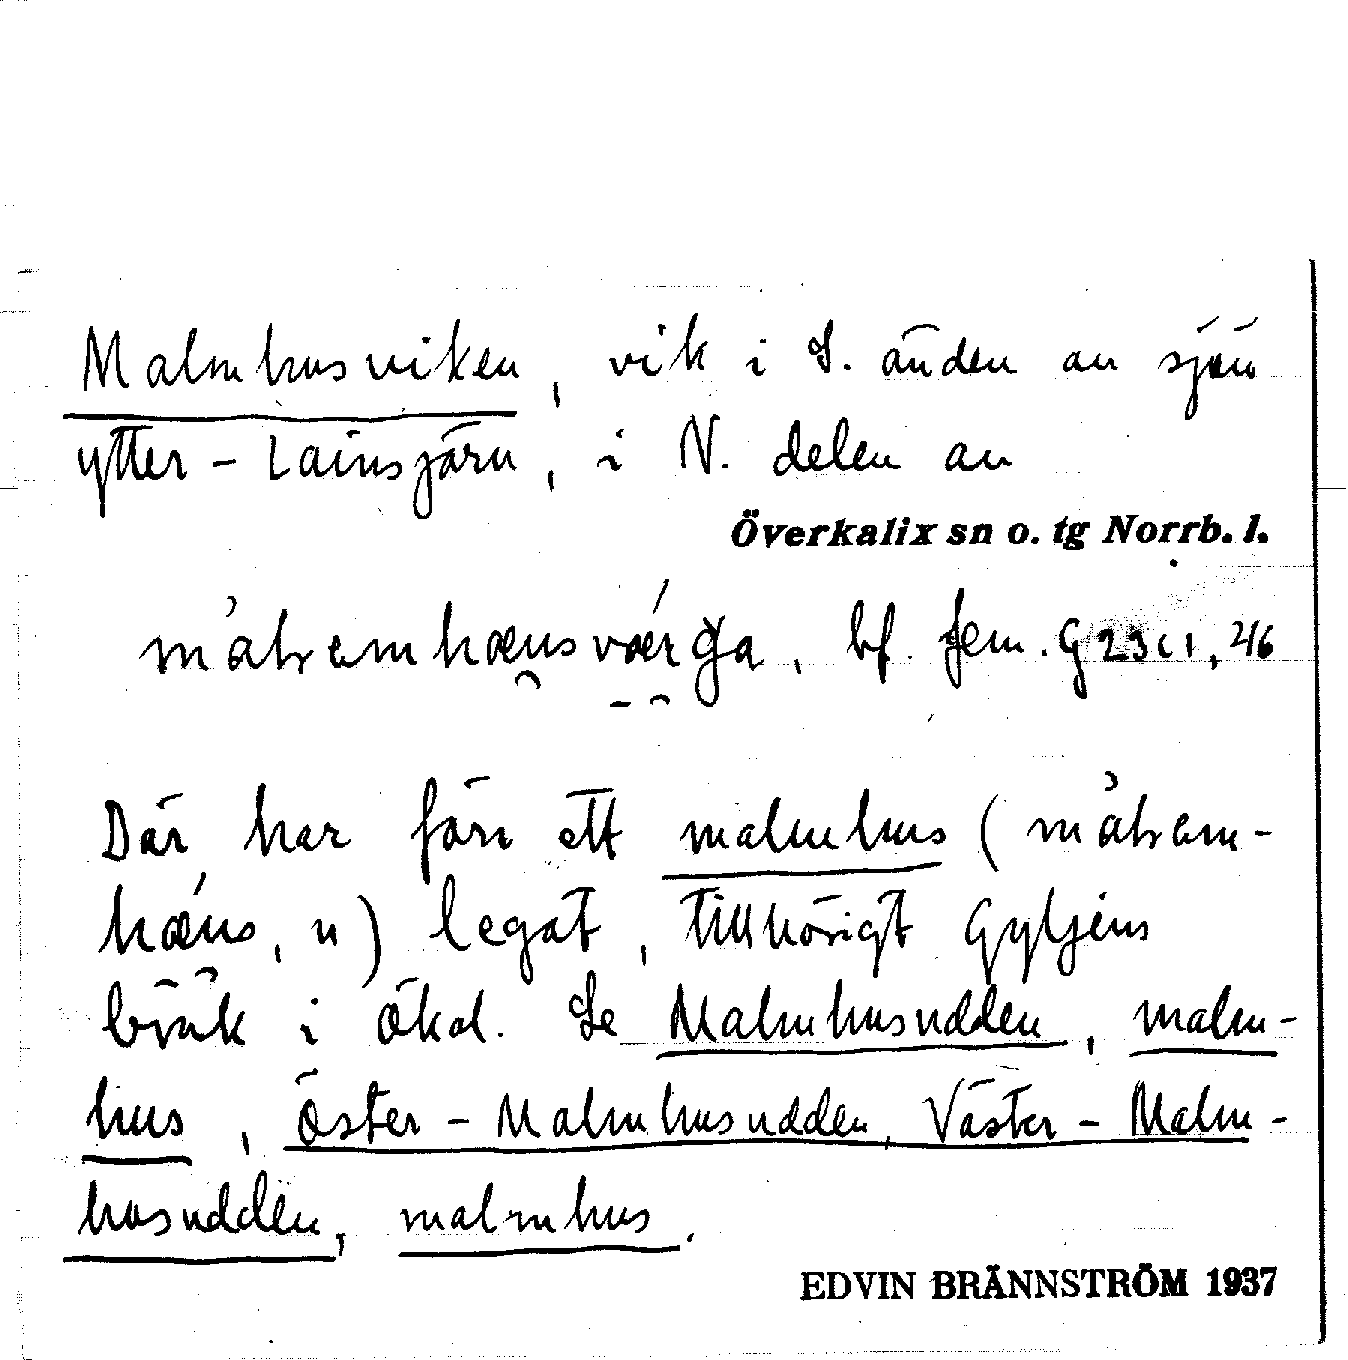 Malmhusviken, vik i S. änden av sjön
ytter-Lainsjärv, i N. delen av
Överkalix sn o. tg Norrb. l.
bf. fem. G 23 C 1, 2/6
Där har förr ett malmhus (
n) legat, tillhörigt Gyljens
bruk i Ökal. Se Malmhusudden, malm-
hus, öster-Malmhusudden, Väster-Malm-
husudden, malmhus.
EDVIN BRÄNNSTRÖM 1937